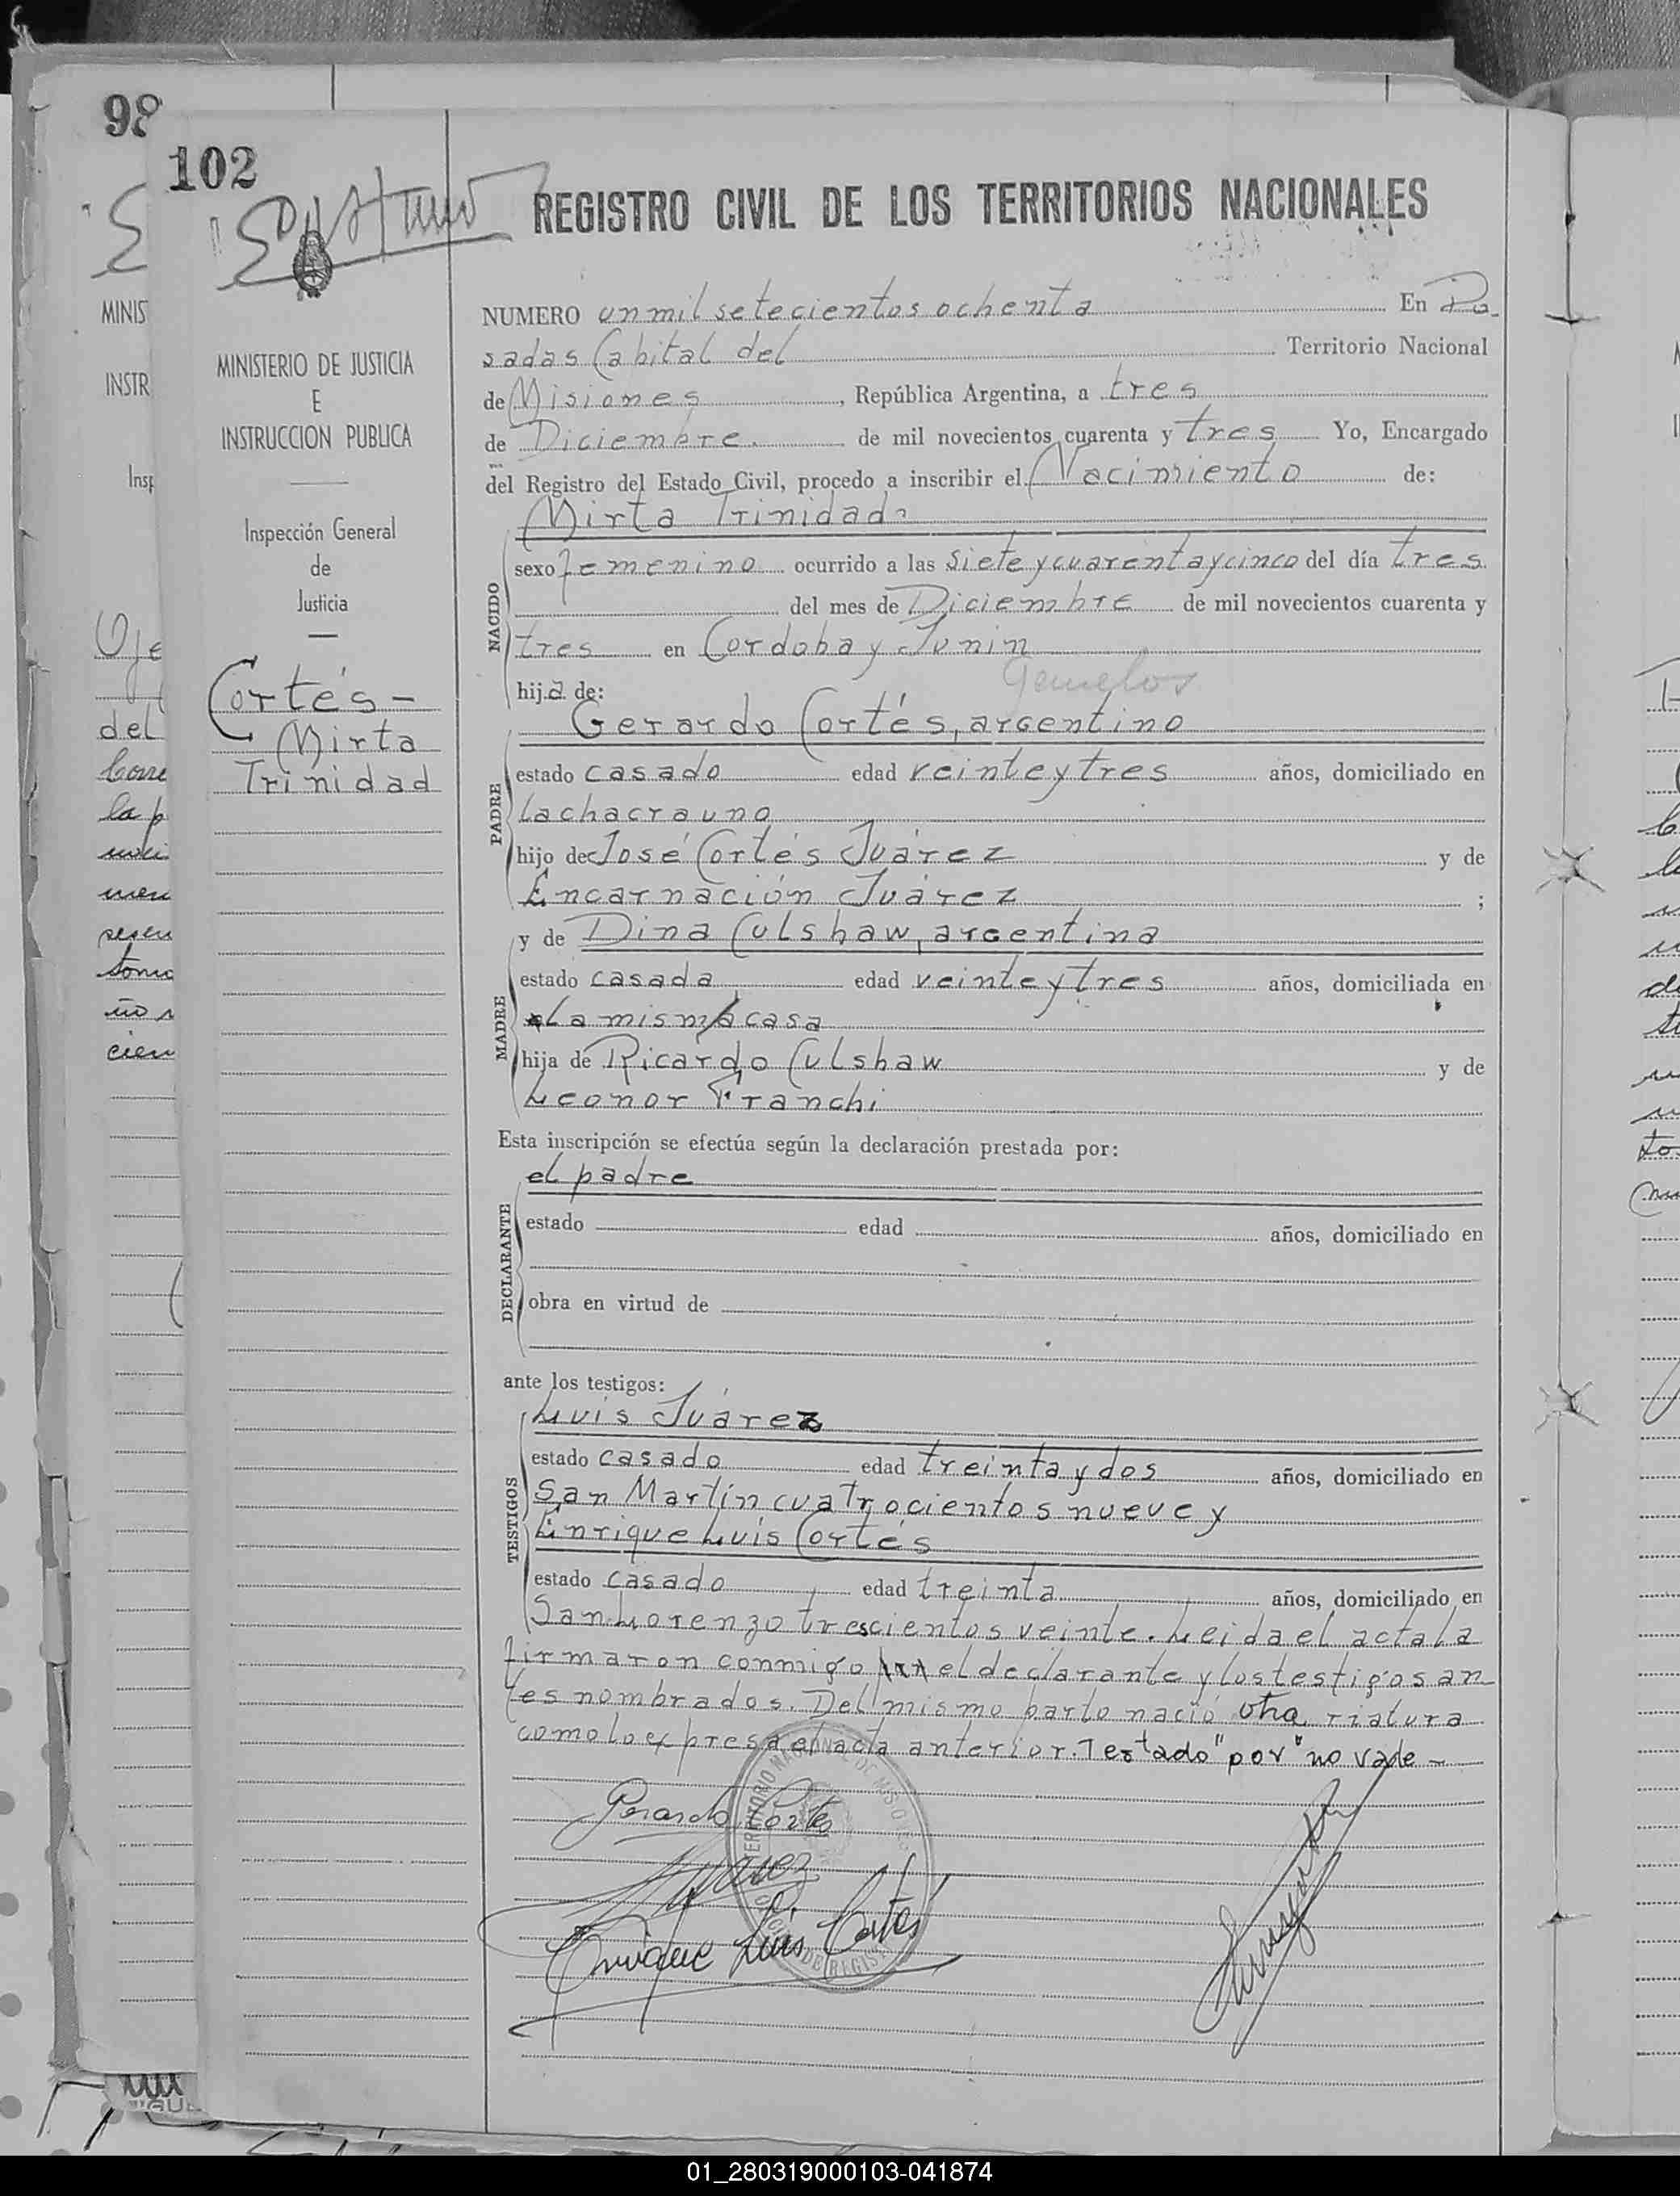 98
102
REGISTRO CIVIL DE LOS TERRITORIOS NACIONALES
MINISTERIO DE JUSTICIA
E
INSTRUCCION PUBLICA
Inspección General
de
Justicia
Cortés-
Mirta
Trinidad
NUMERO un mil setecientos ochenta En Po-
sadas Capital del Territorio Nacional
de Misiones, República Argentina, a tres
de Diciembre. de mil novecientos cuarenta y tres Yo, Encargado
del Registro del Estado Civil, procedo a inscribir el Nacimiento de:
Mirta Trinidad
NACIDO
sexo femenino ocurrido a las siete y cuarenta y cinco del día tres
del mes de Diciembre de mil novecientos cuarenta y
tres en Cordoba y Junin
gemelos
hija de:
Gerardo Cortés, argentino
PADRE
estado casado edad veinte y tres años, domiciliado en
la chacra uno
hijo de José Cortés Juárez y de
Encarnación Juárez ;
y de Dina Culshaw, argentina
MADRE
estado casada edad veinte y tres años, domiciliada en
La misma casa
hija de Ricardo Culshaw y de
Leonor Franchi
Esta inscripción se efectúa según la declaración prestada por:
el padre
DECLARANTE
estado edad años, domiciliado en
obra en virtud de
ante los testigos:
Luis Juárez
TESTIGOS
estado casado edad treinta y dos años, domiciliado en
San Martín cuatrocientos nueve y
Enrique Luis Cortés
estado casado edad treinta años, domiciliado en
San Lorenzo trescientos veinte. Leida el acta la
firmaron conmigo el declarante y los testigos an
tes nombrados. Del mismo parto nació otra riatura
como lo expresa el acta anterior. Testado "por" no vale -
Gerardo Cortés
Juarez
Enrique Luis Cortés
01_280319000103-041874